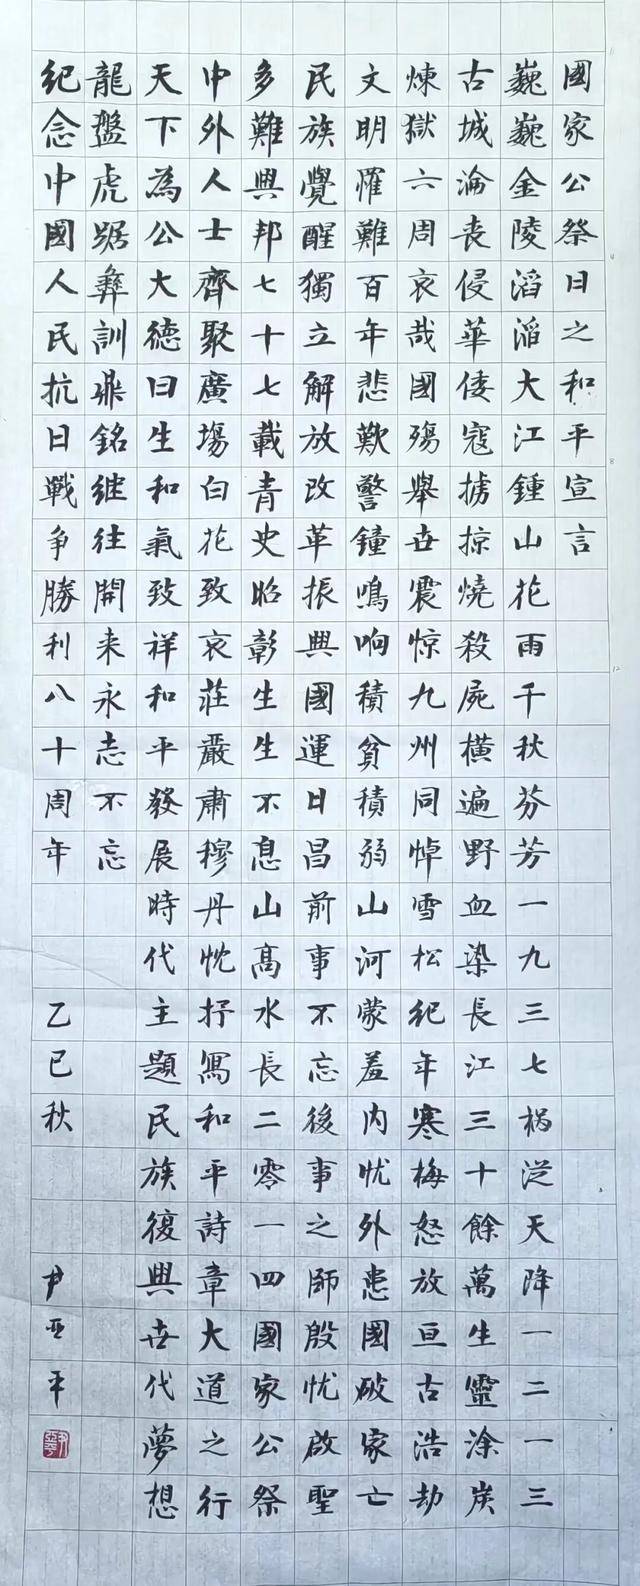 國家公祭日之和平宣言
巍巍金陵滔滔大江鍾山花雨千秋芬芳一九三七祸從天降一二一三
古城淪丧侵華倭寇擄掠燒殺屍橫遍野血染長江三十餘萬生靈涂炭
煉獄六周哀哉國殤舉世震惊九州同悼雪松纪年寒梅怒放亘古浩劫
文明罹難百年悲歎警鐘鳴响積貧積弱山河蒙羞内忧外患國破家亡
民族覺醒獨立解放改革振興國運日昌前事不忘後事之師殷忧啟聖
多難興邦七十七載青史昭彰生生不息山高水長二零一四國家公祭
中外人士齊聚廣場白花致哀莊嚴肅穆丹忱抒寫和平詩章大道之行
天下為公大德曰生和氣致祥和平發展時代主題民族復興世代夢想
龍盤虎踞彝訓鼎銘继往開来永志不忘
纪念中國人民抗日戰争勝利八十周年
乙巳秋
尹亚平